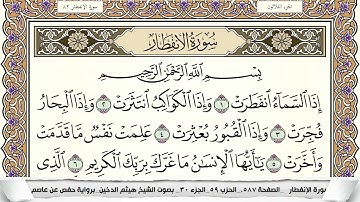 الجزء الثلاثون
سورة الإنفطار ٨٢
سُورَةُ الِانفِطَارِ
بِسْمِ اللَّهِ الرَّحْمَٰنِ الرَّحِيمِ
إِذَا السَّمَاءُ انفَطَرَتْ ١ وَإِذَا الْكَوَاكِبُ انتَثَرَتْ ٢ وَإِذَا الْبِحَارُ
فُجِّرَتْ ٣ وَإِذَا الْقُبُورُ بُعْثِرَتْ ٤ عَلِمَتْ نَفْسٌ مَّا قَدَّمَتْ
وَأَخَّرَتْ ٥ يَا أَيُّهَا الْإِنسَانُ مَا غَرَّكَ بِرَبِّكَ الْكَرِيمِ ٦ الَّذِي
سورة الإنفطار الصفحة ٥٨٧ الحزب ٥٩ الجزء ٣٠ بصوت الشيخ هيثم الدخين برواية حفص عن عاصم